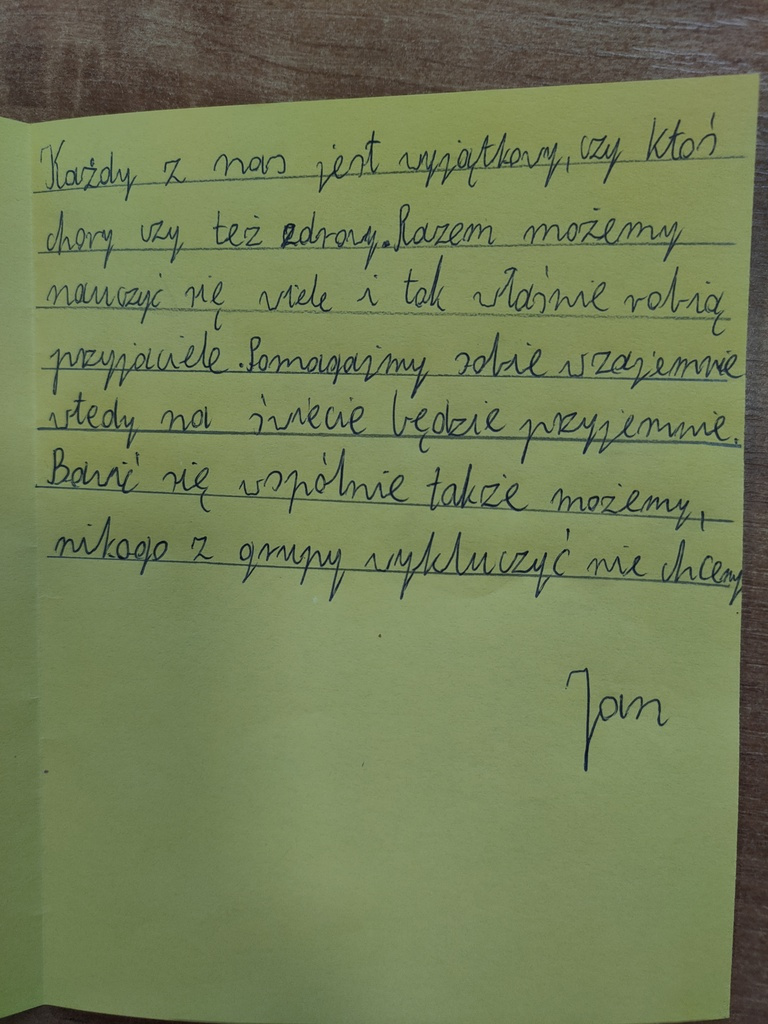 Każdy z nas jest wyjątkowy, czy ktoś
chory czy też zdrowy. Razem możemy
nauczyć się wiele i tak właśnie robią
przyjaciele. Pomagajmy sobie wzajemnie
wtedy na świecie będzie przyjemnie.
Bawić się wspólnie także możemy,
nikogo z grupy wykluczyć nie chcemy
Jan